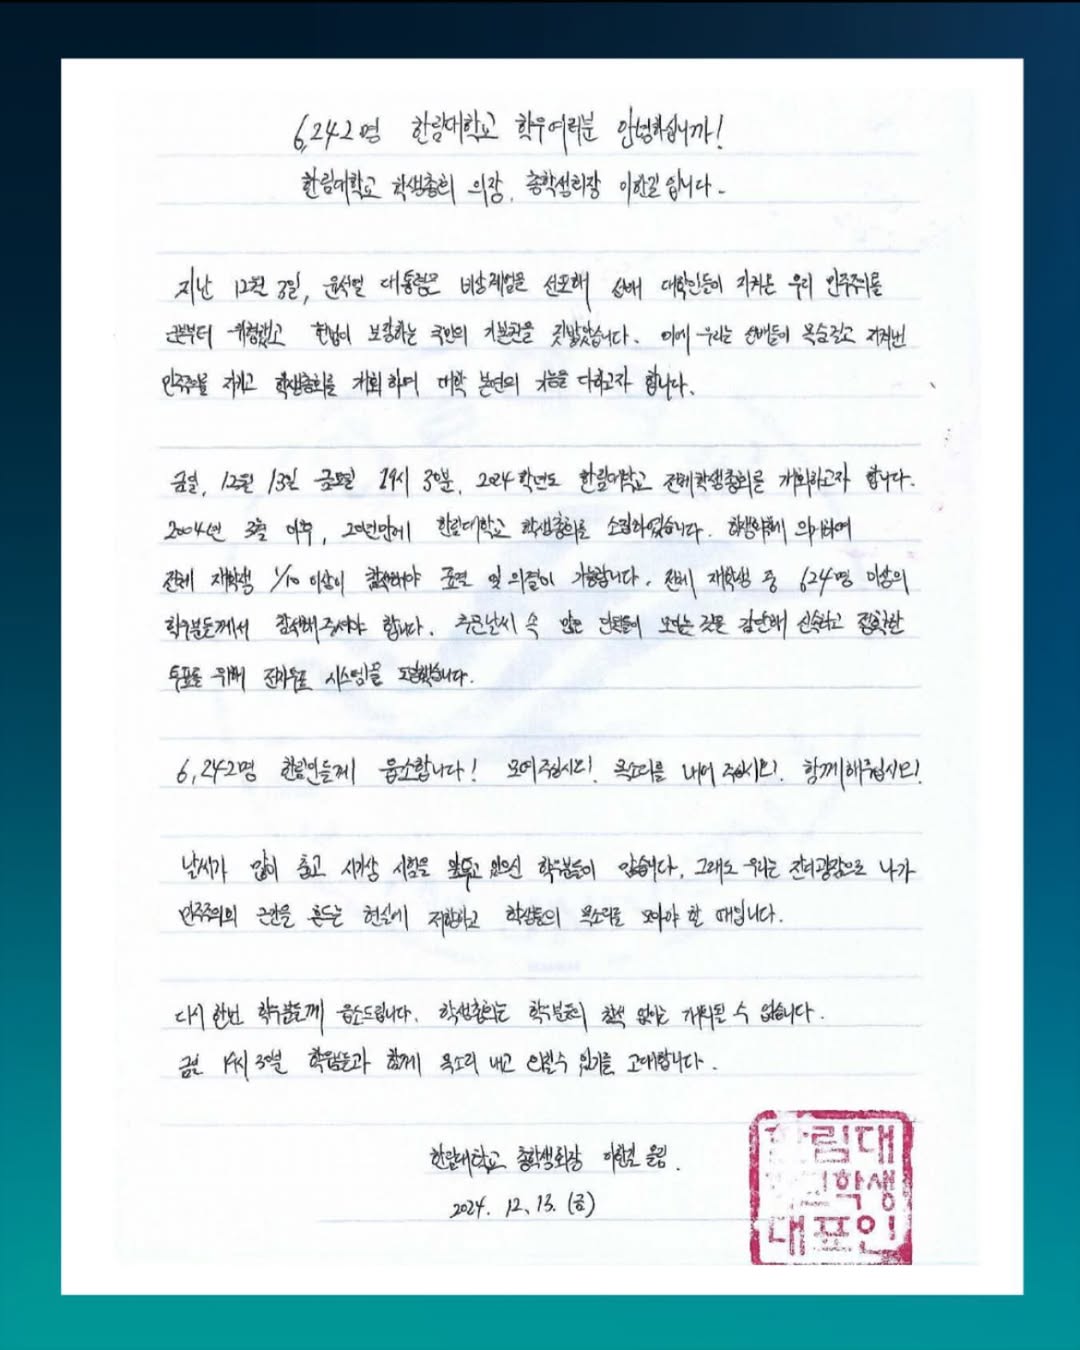 6,242명 한림대학교 학우여러분 안녕하십니까!
한림대학교 학생총회 의장, 총학생회장 이한길입니다.
지난 12월 3일, 윤석열 대통령은 비상계엄을 선포해 선배 대학인들이 지켜온 우리 민주주의를
근본부터 위협했고 헌법이 보장하는 국민의 기본권을 짓밟았습니다. 이에 우리는 선배들이 목숨걸고 지켜낸
민주주의를 지키고 학생총회를 개회하여 대학 본연의 기능을 다하고자 합니다.
금일, 12월 13일 금요일 19시 30분, 2024학년도 한림대학교 전체학생총회를 개회하고자 합니다.
2004년 3월 이후, 20년만에 한림대학교 학생총회를 소집하였습니다. 학생회칙에 의거하여
전체 재학생 1/10 이상이 참석해야 표결 및 의결이 가능합니다. 전체 재학생 중 624명 이상의
학우분들께서 참석해주셔야 합니다. 추운날씨 속 많은 인원들이 모이는 것을 감안해 신속하고 정확한
투표를 위해 전자투표 시스템을 도입했습니다.
6,242명 한림인들께 읍소합니다! 모여주십시오! 목소리를 내어 주십시오! 함께해주십시오!
날씨가 많이 춥고 시기상 시험을 앞두고 있으신 학우분들이 많습니다. 그래도 우리는 잔디광장으로 나가
민주주의의 근간을 흔드는 현실에 저항하고 학생들의 목소리를 모아야 할 때입니다.
다시 한번 학우분들께 읍소드립니다. 학생총회는 학우분들의 참석 없이는 개회될 수 없습니다.
금일 19시 30분 학우분들과 함께 목소리 내고 있기를 고대합니다.
한림대학교 총학생회장 이한길 올림.
2024. 12. 13. (금)
한림대
학교학생
대표인